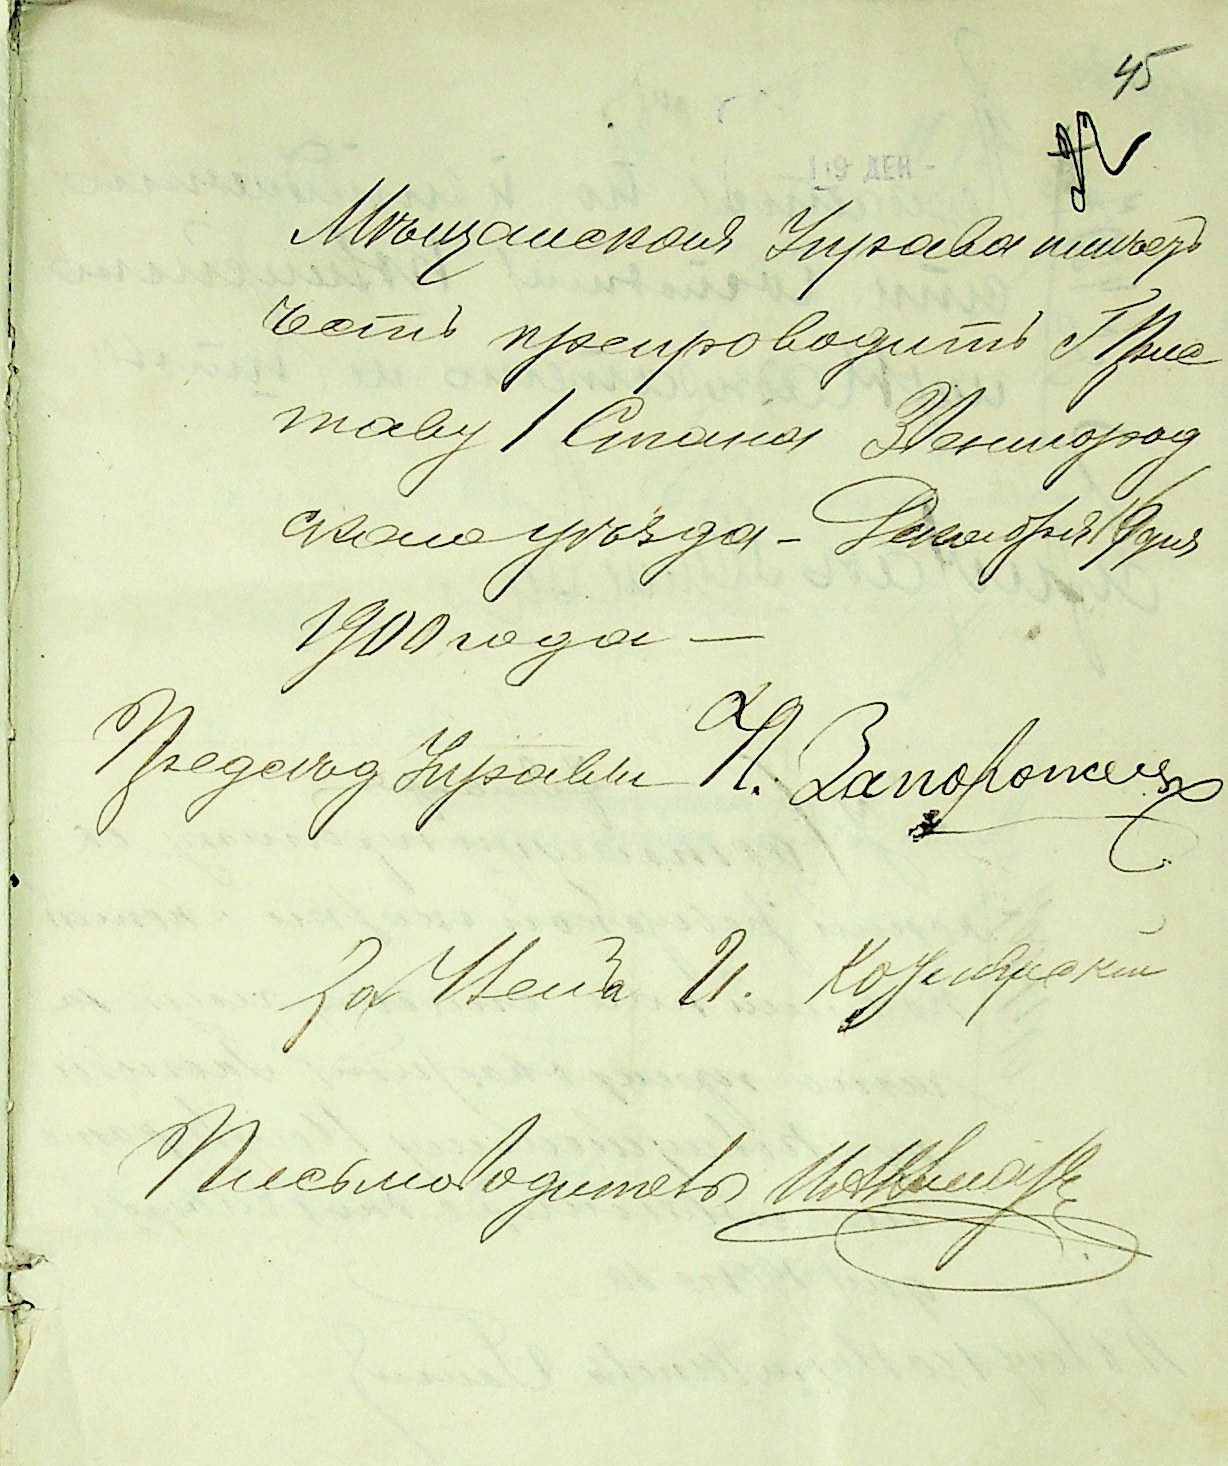 45
Мѣщанская Управа имѣетъ
честь препроводить Г Прис
таву 1 Стана Звенигород
скаго уѣзда – Декабря 19 дня
1900 года —
Предсѣд Управы П. Запорожецъ
За Член
Письмоводитель